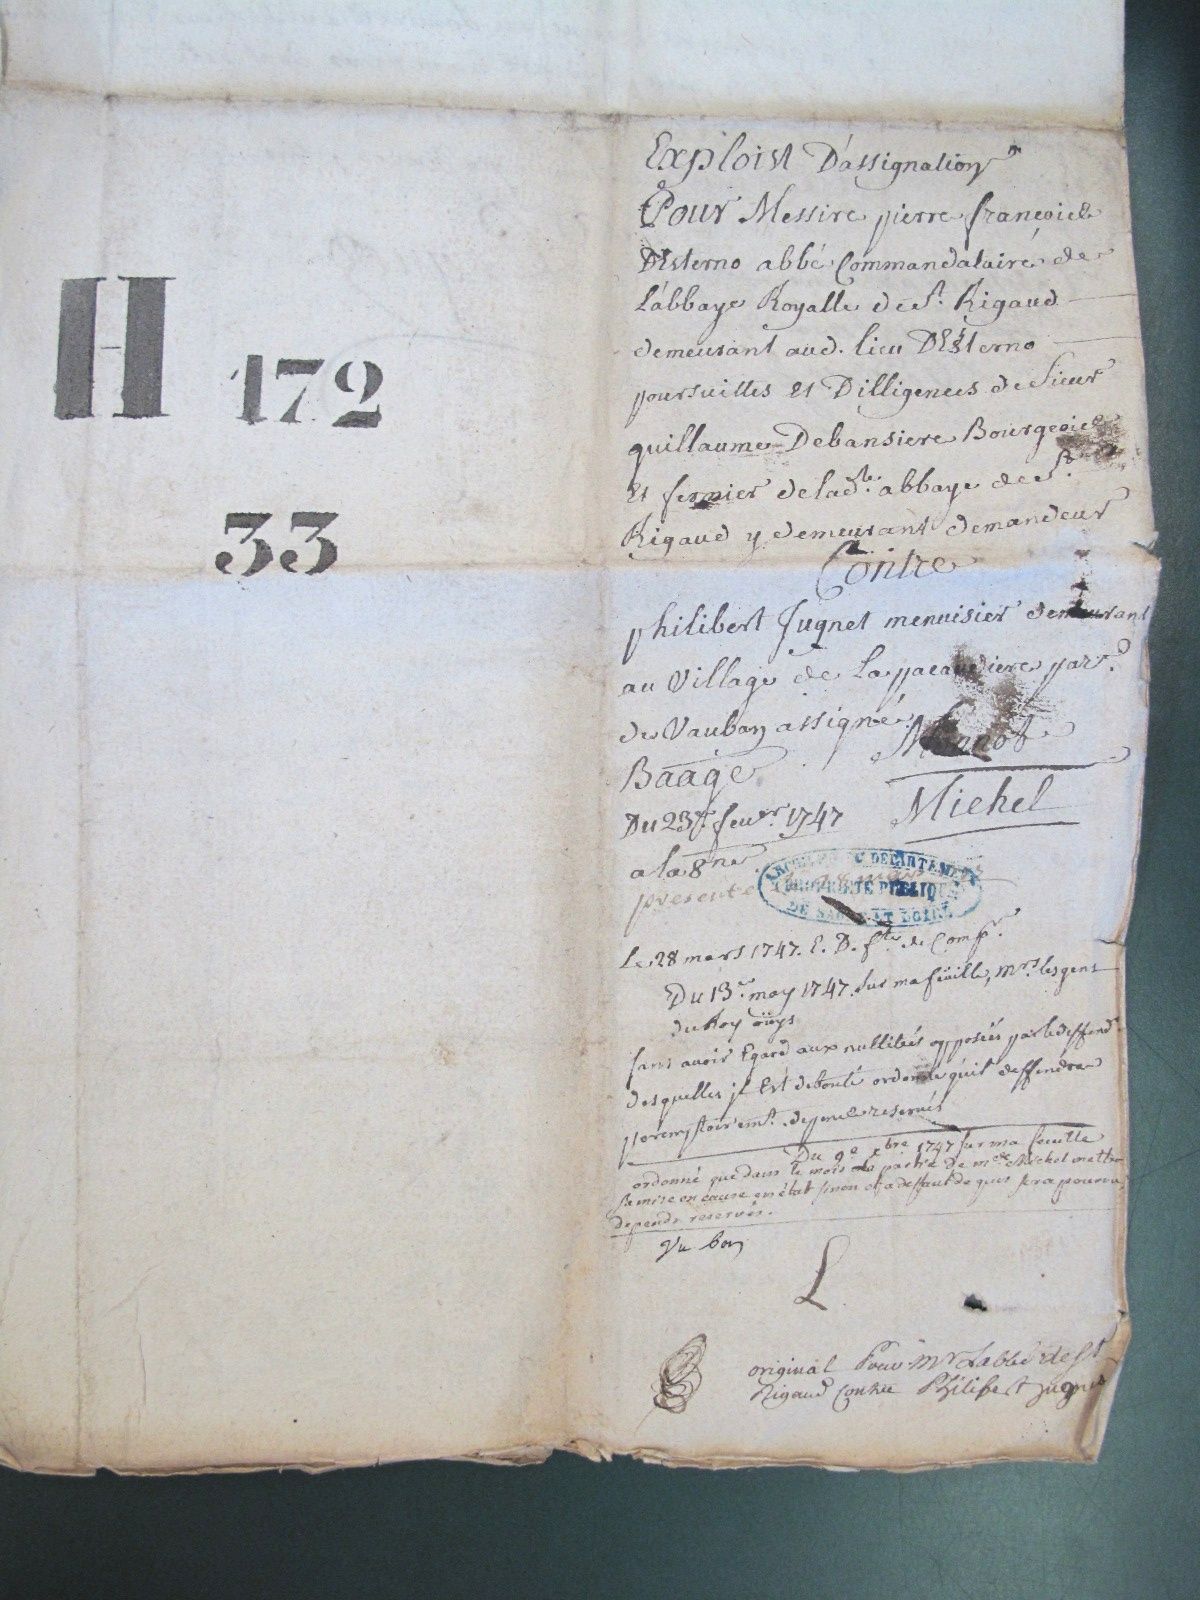 H 172
33
Exploist D'assignation
Pour Messire pierre francois
D'Esterno abbé Commandataire de
L'abbaye Royalle de St. Rigaud
demeurant aud. lieu D'Esterno
poursuittes et Dilligences de Sieur
guillaume Debansiere Bourgeois
Et fermier de lade. abbaye de St.
Rigaud y demeurant demandeur
Contre
philibert Jugnet menuisier demeurant
au Village de La pacaudiere parr.
de Vauban assigné
Baagé
Michel
Du 23e feuer. 1747
a la 8ne
presenté
ARCHIVES DU DEPARTEMENT
PROPRIETE PUBLIQUE
DE SAONE ET LOIRE
Le 28 mars 1747. E. D. fte de Compr.
Du 13e may 1747 sur ma feüille, Mrs. les gens
du Roy oüys
sans avoir Egard aux nullités opposées par le deffend.
desquelles jl Est debouté ordonné qu'il deffendra
peremptoiremt. depens reservés
Du 9e xbre 1747 sur ma feuille
ordonné que dans le mois la partie de me Michel mettra
sa mise en cause en état sinon et a deffaut de quoi sera pourvu
depends reservés.
Vu bon
L
original Pour Mr Labbé de St
Rigaud Contre Philibert Jugnet